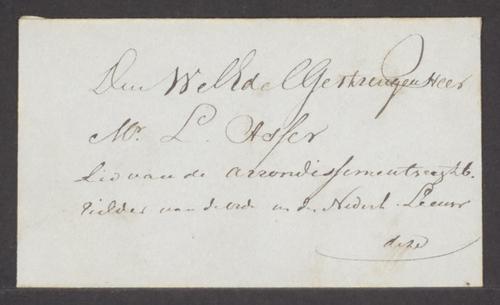 Den WelEdel Gestrengen Heer
Mr. L. Asser
Lid van de arrondissementsregtb.
ridder van de orde van den Nederl. Leeuw
dezer